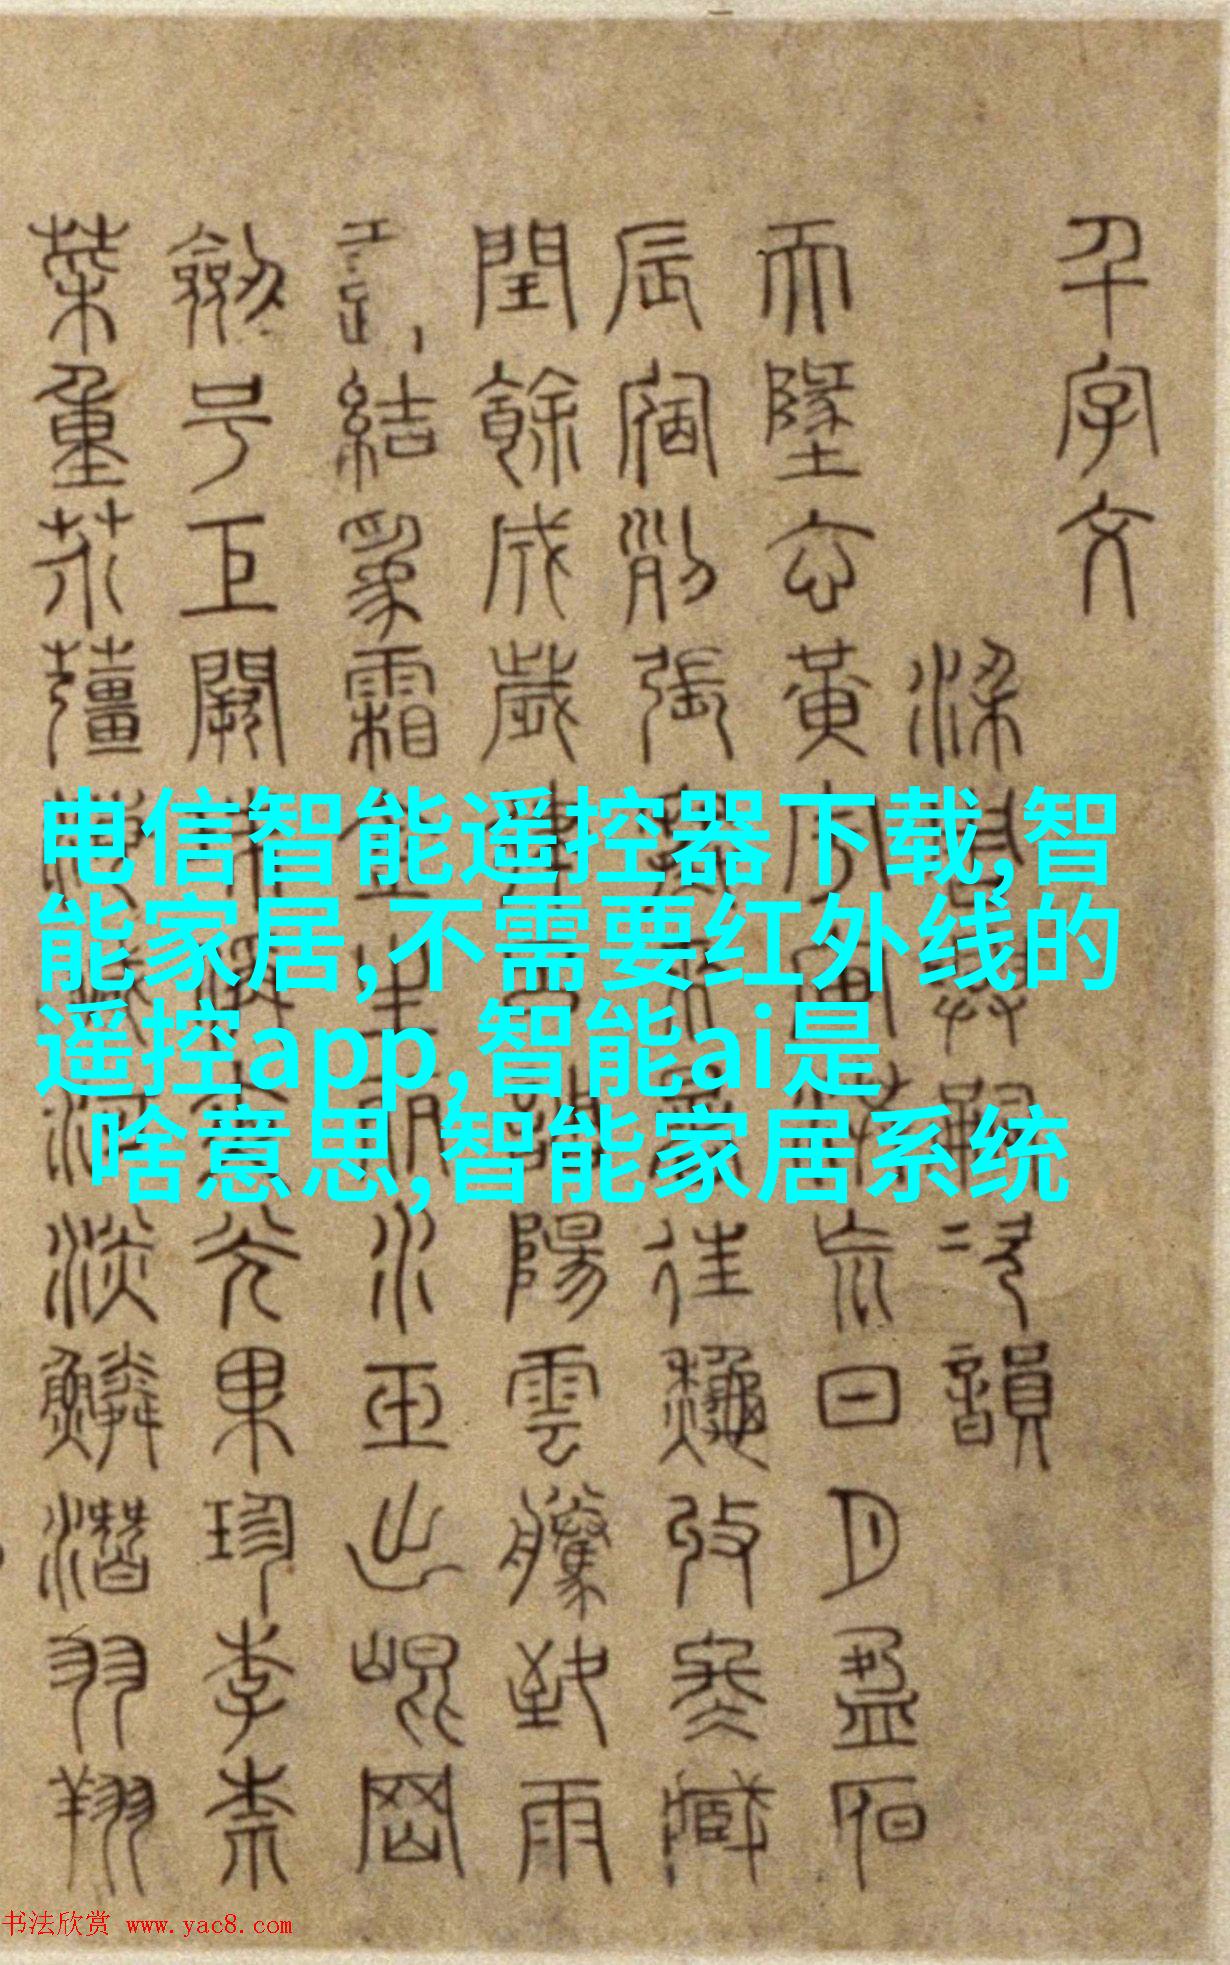 千字文
梁周興嗣次韻
天地玄黃宇宙洪荒日月盈昃
辰宿列張寒來暑往秋收冬藏
閏餘成歲律呂調陽雲騰致雨
露結為霜金生麗水玉出崐岡
劍号巨闕珠稱夜光果珍李柰
菜重芥薑海鹹河淡鱗潛羽翔
电信智能遥控器下载,智
能家居,不需要红外线的
遥控app,智能ai是
啥意思,智能家居系统
书法欣赏 www.yac8.com